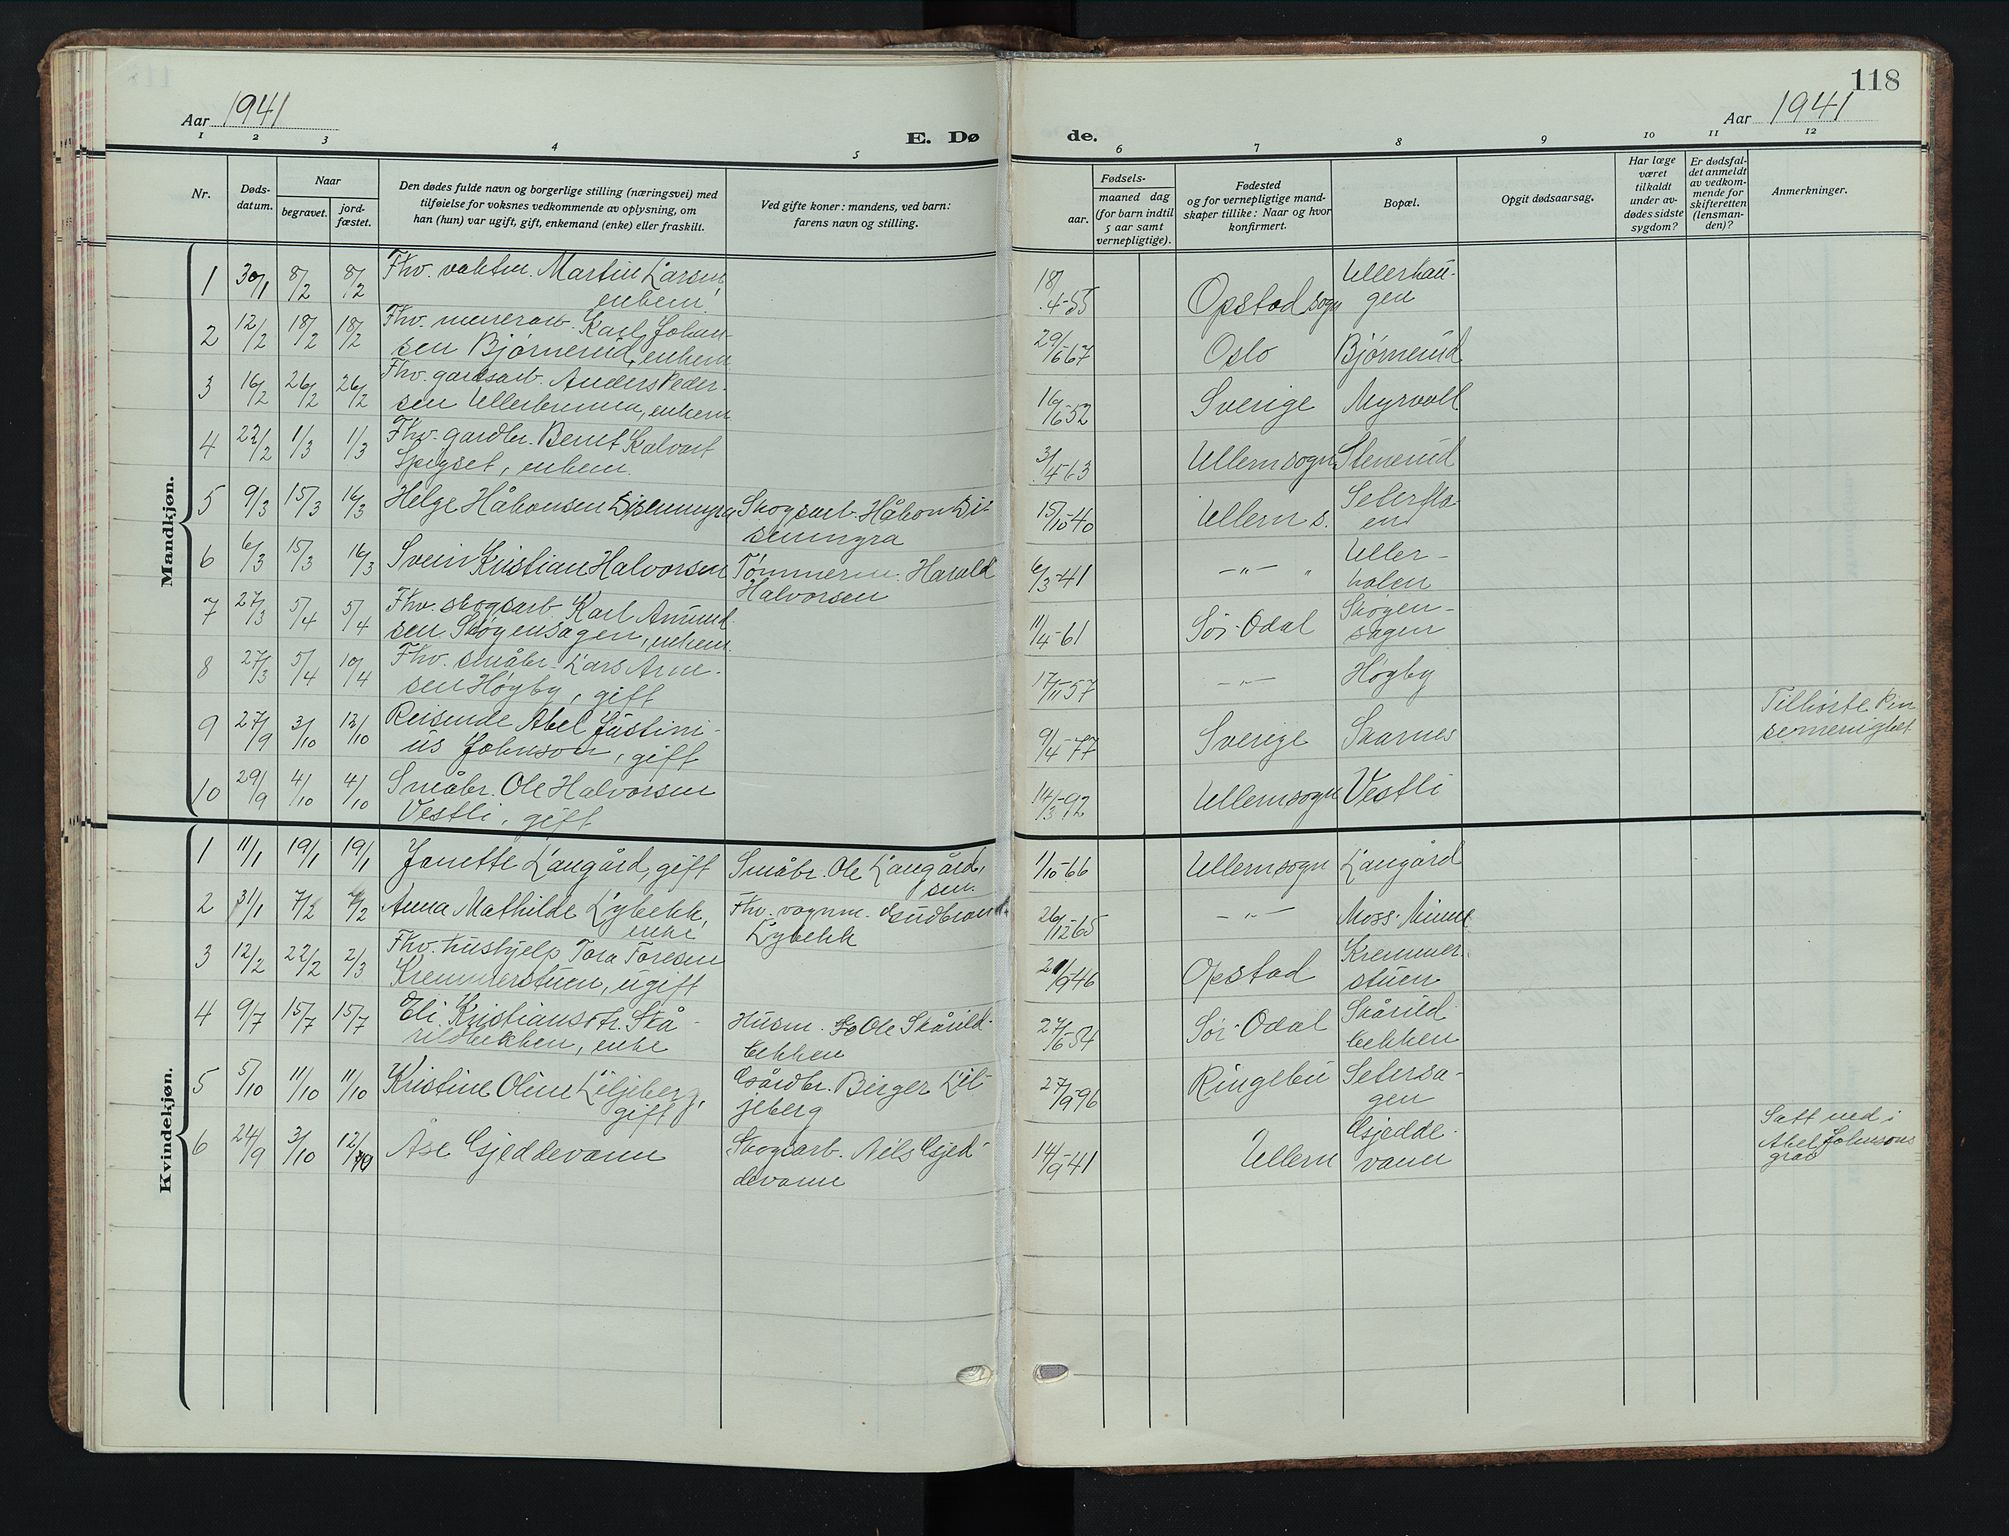 118
Aar 1941
Aar 1941
E. Dø
de.
1 2 3 4 5 6 7 8 9 10 11 12
Nr.
Døds-
datum.
Naar
begravet.
jord-
fæstet.
Den dødes fulde navn og borgerlige stilling (næringsvei) med
tilføielse for voksnes vedkommende av oplysning, om
han (hun) var ugift, gift, enkemand (enke) eller fraskilt.
Ved gifte koner: mandens, ved barn:
farens navn og stilling.
Fødsels-
aar.
maaned dag
(for barn indtil
5 aar samt
vernepligtige).
Fødested
og for vernepligtige mand-
skaper tillike: Naar og hvor
konfirmert.
Bopæl.
Opgit dødsaarsag.
Har læge
været
tilkaldt
under av-
dødes sidste
sygdom?
Er dødsfal-
det anmeldt
av vedkom-
mende for
skifteretten
(lensman-
den)?
Anmerkninger.
Mandkjøn.
1 30/1 8/2 8/2 Fhv. vaktm. Martin Larsen, 18/4-55 Opstad sogn Ullerhau-
enkem. gen
2 12/2 18/2 18/2 Fhv. murerarb. Karl Johan- 29/6-67 Oslo Bjørnerud
sen Bjørnerud, enkem
3 16/2 26/2 26/2 Fhv. gardsarb. Anders Peder- 16/6-52 Sverige Myrvoll
sen Ullerbrenna, enkem
4 22/2 1/3 1/3 Fhv. gardbr. Bernt Kalvart 3/4-63 Ullern sogn Stenerud
Spigset, enkem.
5 9/3 15/3 16/3 Helge Håkonsen Disenmyra Skogsarb. Håkon Di- 15/10-40 Ullern s. Seterfla-
senmyra en
6 6/3 15/3 16/3 Svein Kristian Halvorsen Tømmerm. Harald 6/3-41 -"- " Uller-
Halvorsen holen
7 27/3 5/4 5/4 Fhv. skogsarb. Karl Amund- 11/4-61 Sør-Odal Skøgen-
sen Skøgensagen, enkem. sagen
8 27/3 5/4 10/4 Fhv. småbr. Lars Arne- 17/11-57 -"- Høgby
sen Høgby, gift
9 27/9 3/10 13/10 Reisende Abel Justini- 9/4-77 Sverige Skarnes Tilhørte Pin
us Johnson, gift semenighet
10 29/9 4/10 4/10 Småbr. Ole Halvorsen 14/3-92 Ullern sogn Vestli
Vestli, gift
Kvindekjøn.
1 11/1 19/1 19/1 Janette Langård, gift Småbr. Ole Langård, 1/10-66 Ullern sogn Langård
sen.
2 31/1 7/2 /2 Anna Mathilde Lybekk, Fhv. vognm. Gudbrand 26/12-65 -"- Moss-Minne
enke Lybekk
3 12/2 22/2 2/3 Fhv. hushjelp Tora Toresen 21/9-46 Opstad Kremmer-
Kremmerstuen, ugift stuen
4 9/7 15/7 15/7 Eli Kristiansdtr. Skå- Husm. Ole Skårild- 27/6-54 Sør-Odal Skårild-
rildbekken, enke bekken bekken
5 5/10 11/10 11/10 Kristine Oline Liljeberg, Gårdbr. Birger Lil- 27/9-96 Ringebu Setersa-
gift jeberg gen
6 24/9 3/10 12/10 Åse Gjeddevann Skogsarb. Nils Gjed- 14/9-41 Ullern Gjedde- Satt ned i
devann vann Abel Johnsons
grav